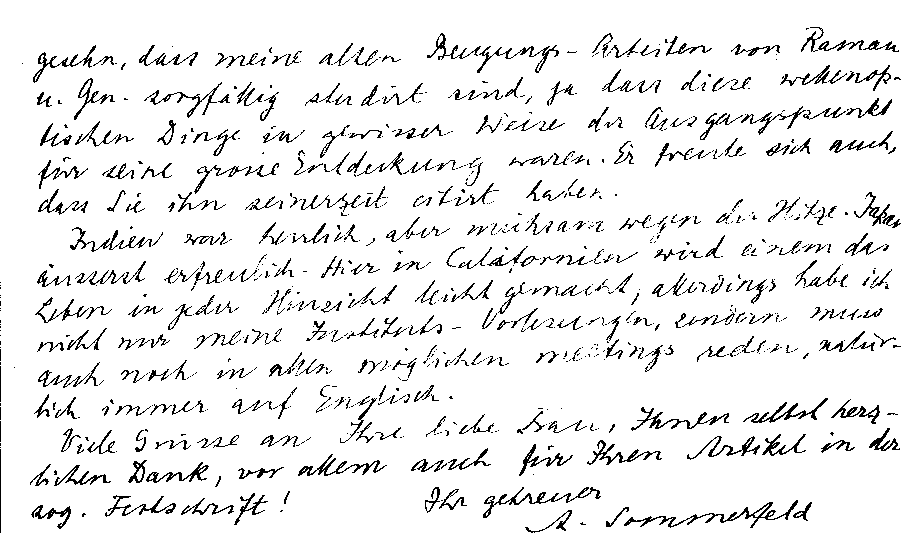 gesehn, dass meine alten Beugungs-Arbeiten von Raman
u. Gen. sorgfältig studirt sind, ja dass diese wellenop-
tischen Dinge in gewisser Weise der Ausgangspunkt
für seine grosse Entdeckung waren. Er freute sich auch,
dass Sie ihn seinerzeit citirt haben.
Indien war herrlich, aber mühsam wegen der Hitze. Japan
äusserst erfreulich. Hier in Californien wird einem das
Leben in jeder Hinsicht leicht gemacht, allerdings habe ich
nicht nur meine Instituts-Vorlesungen, sondern muss
auch noch in allen möglichen meetings reden, natür-
lich immer auf Englisch.
Viele Grüsse an Ihre liebe Frau, Ihnen selbst herz-
lichen Dank, vor allem auch für Ihren Artikel in der
sog. Festschrift!
Ihr getreuer
A. Sommerfeld